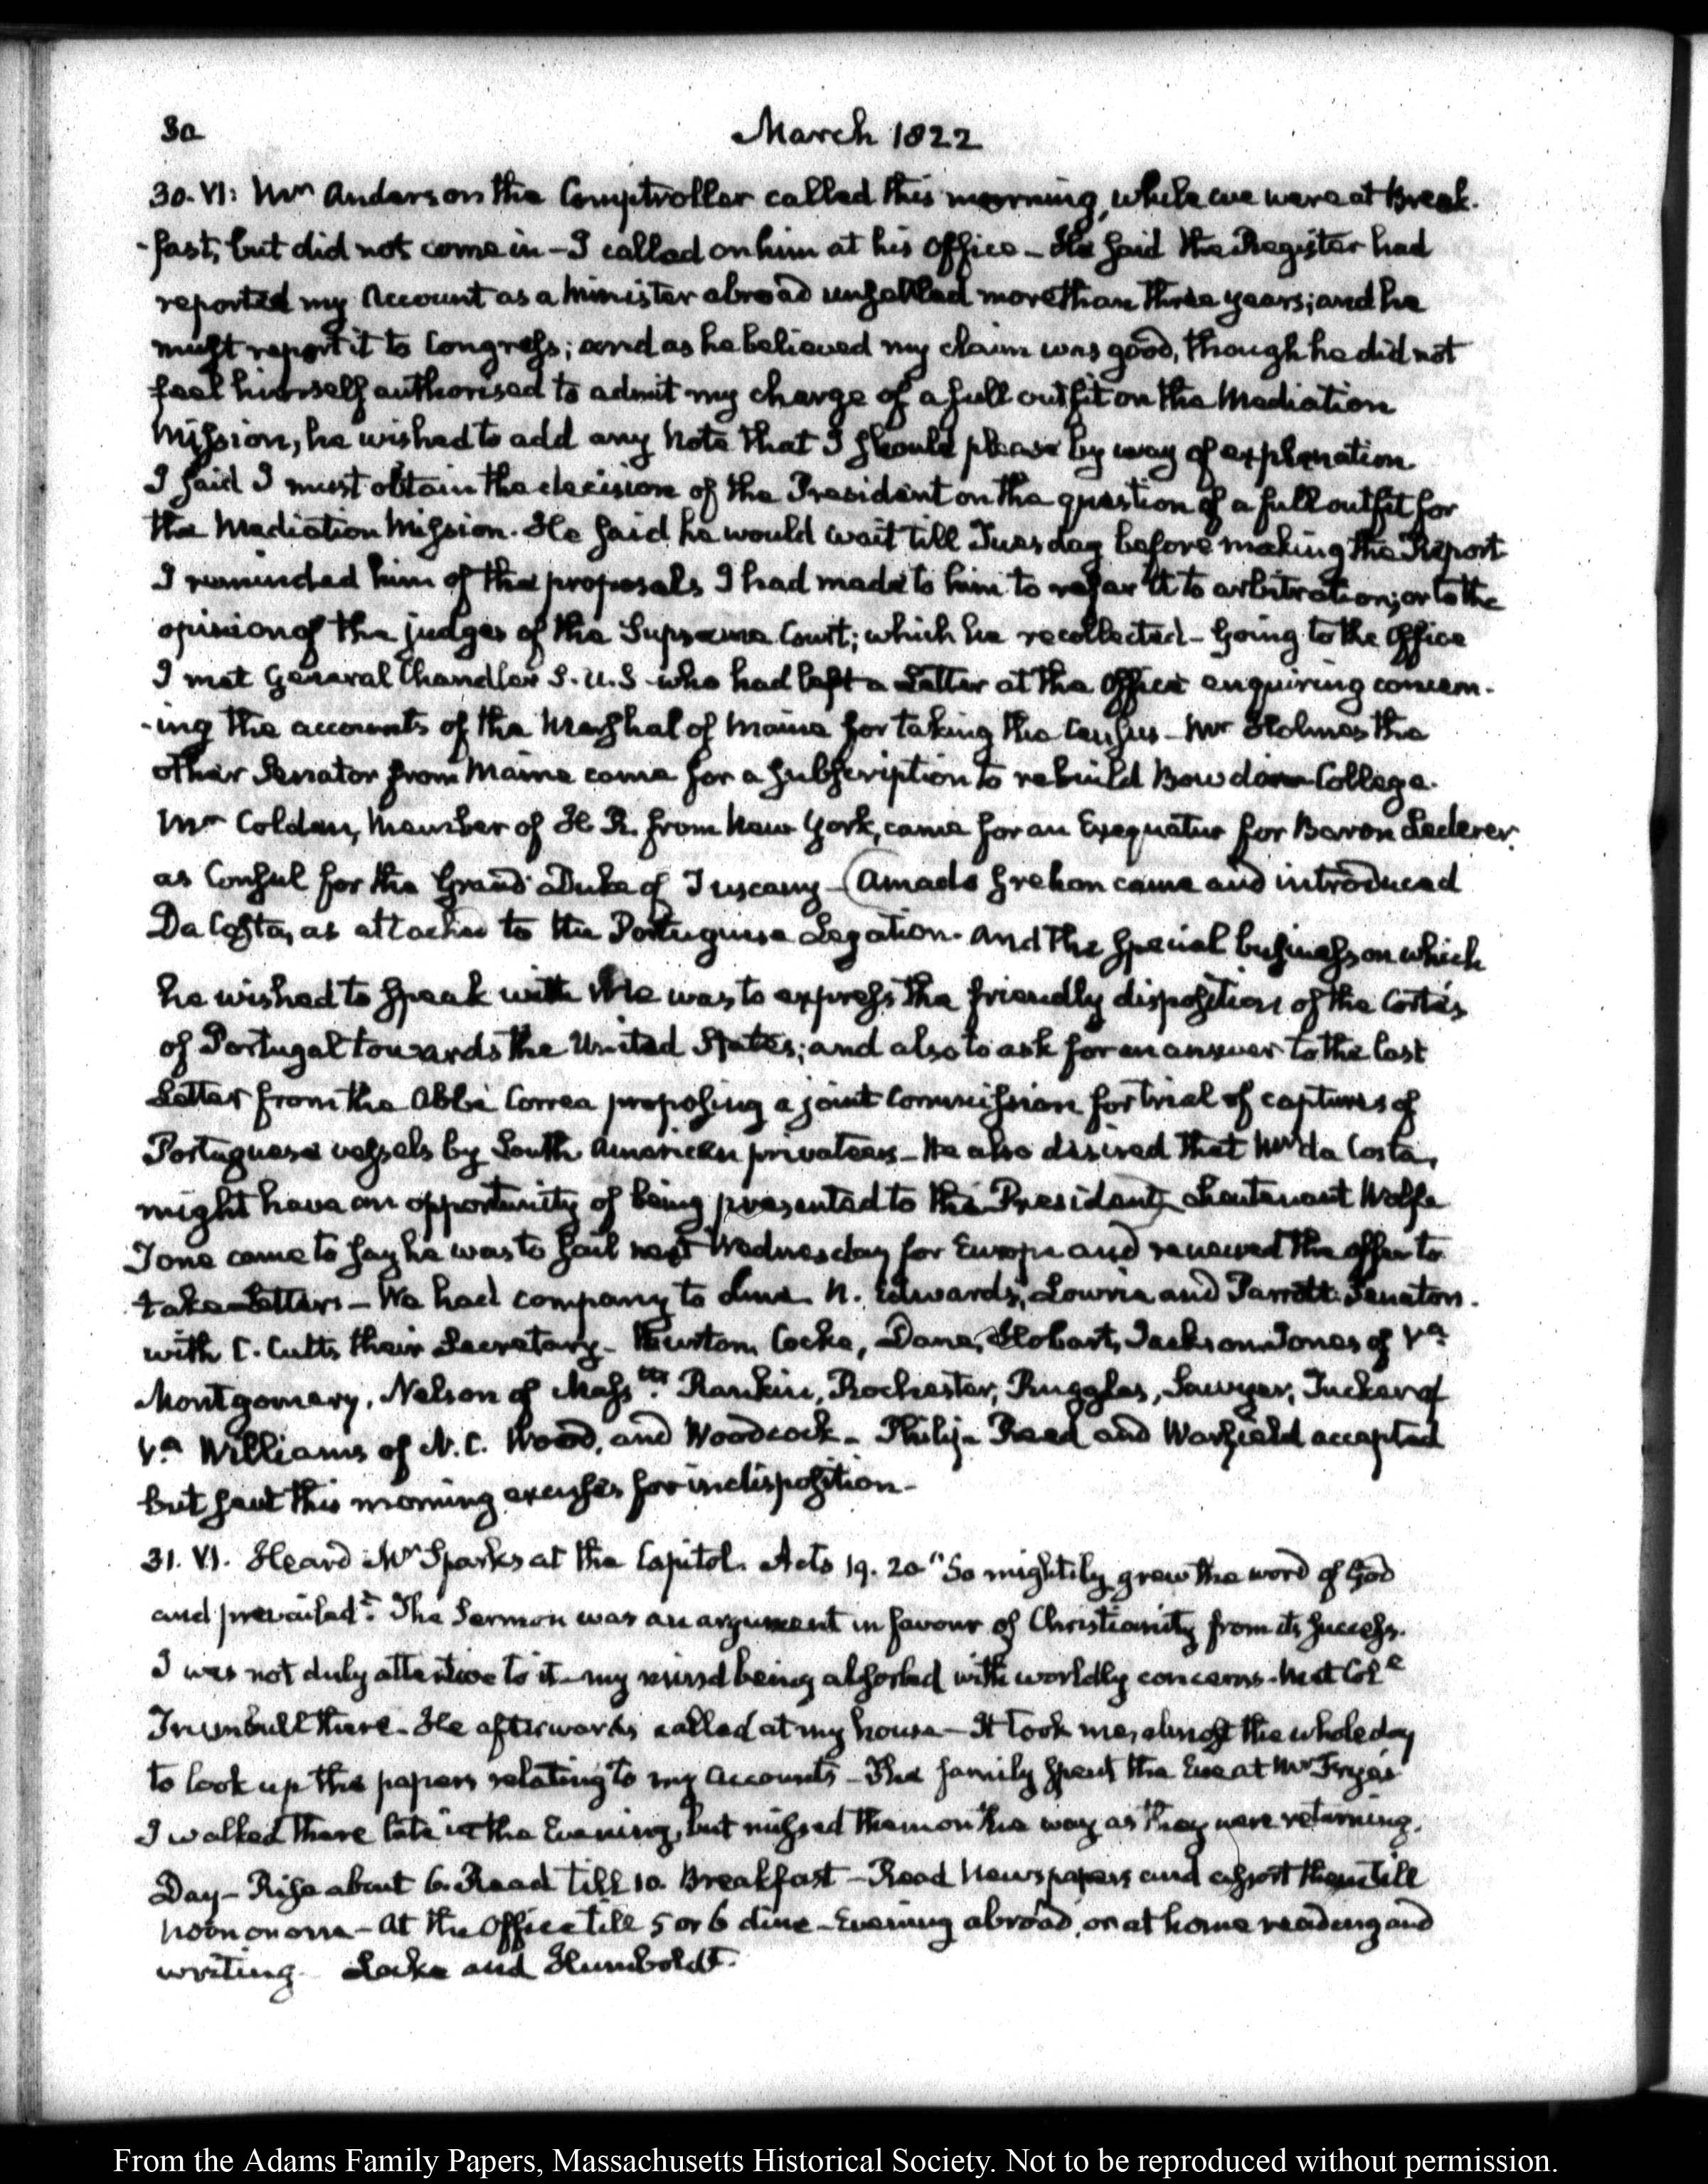 30
March 1822
30. VI: Mr Anderson the Comptroller called this morning, while we were at Break-
-fast, but did not come in — I called on him at his Office — He said the Register had
reported my Account as a Minister abroad unsettled more than three years; and he
must report it to Congress; and as he believed my claim was good, though he did not
feel himself authorised to admit my charge of a full outfit on the Mediation
Mission, he wished to add any Note that I should please by way of explanation.
I said I must obtain the decision of the President on the question of a full outfit for
the Mediation Mission. He said he would wait till Tuesday before making the Report
I reminded him of the proposals I had made to him to refer it to arbitration; or to the
opinion of the judges of the Supreme Court; which he recollected — Going to the Office
I met General Chandler S. U. S who had left a Letter at the Office enquiring concern-
-ing the accounts of the Marshal of Maine for taking the Census — Mr Holmes the
other Senator from Maine came for a subscription to rebuild Bowdoin College.
Mr Colden, Member of H. R. from New York, came for an Exequatur for Baron Lederer.
as Consul for the Grand Duke of Tuscany — (Amado Grehon came and introduced
Da Costa, as attached to the Portuguese Legation. And the special business on which
he wished to speak with me was to express the friendly disposition of the Cortes
of Portugal towards the United States; and also to ask for an answer to the last
Letter from the Abbé Correa proposing a joint Commission for trial of captures of
Portuguese vessels by South American privateers — He also desired that Mr da Costa,
might have an opportunity of being presented to the President) Lieutenant Wolfe
Tone came to say he was to sail next Wednesday for Europe and renewed the offer to
take Letters — We had company to dine. N. Edwards, Lowrie and Parrott Senators.
with C. Cutts their Secretary — Newton, Cocke, Dane, Hobart, Jackson, Jones of Va
Montgomery, Nelson of Masstts Rankin, Rochester, Ruggles, Sawyer, Tucker of
Va Williams of N. C. Wood, and Woodcock — Philip Reed and Warfield accepted
but sent this morning excuses for indisposition —
31. VI. Heard Mr Sparks at the Capitol. Acts 19. 20 "So mightily grew the word of God
and prevailed". The Sermon was an argument in favour of Christianity from its success.
I was not duly attentive to it — my mind being absorbed with worldly concerns. Met Coll
Trumbull there — He afterwards called at my house — It took me, almost the whole day
to look up the papers relating to my Accounts — The family spent the Eve at Mr Frye's
I walked there late in the Evening, but missed them on the way as they were returning.
Day — Rise about 6. Read till 10. Breakfast — Read Newspapers and assort them till
noon or one — At the Office till 5 or 6 dine — Evening abroad, or at home reading and
writing. Locke and Humboldt.
From the Adams Family Papers, Massachusetts Historical Society. Not to be reproduced without permission.